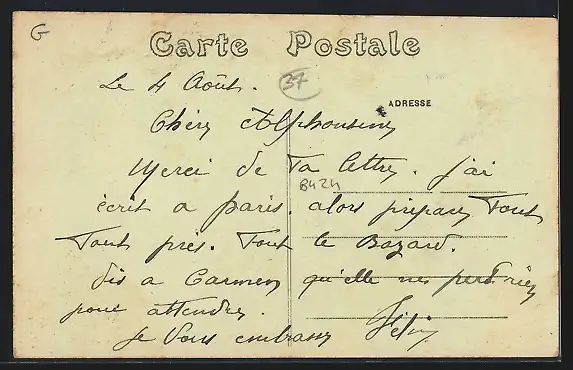 G
Carte Postale
Le 4 Août.
37
ADRESSE
Chère Alphonsine
Merci de Ta lettre. j'ai
B424
écrit a paris. alors prépare Tout
Tout près. Tout le Bazard.
dis a Carmen qu'elle ne perd rien
pour attendre.
je Vous embrasse